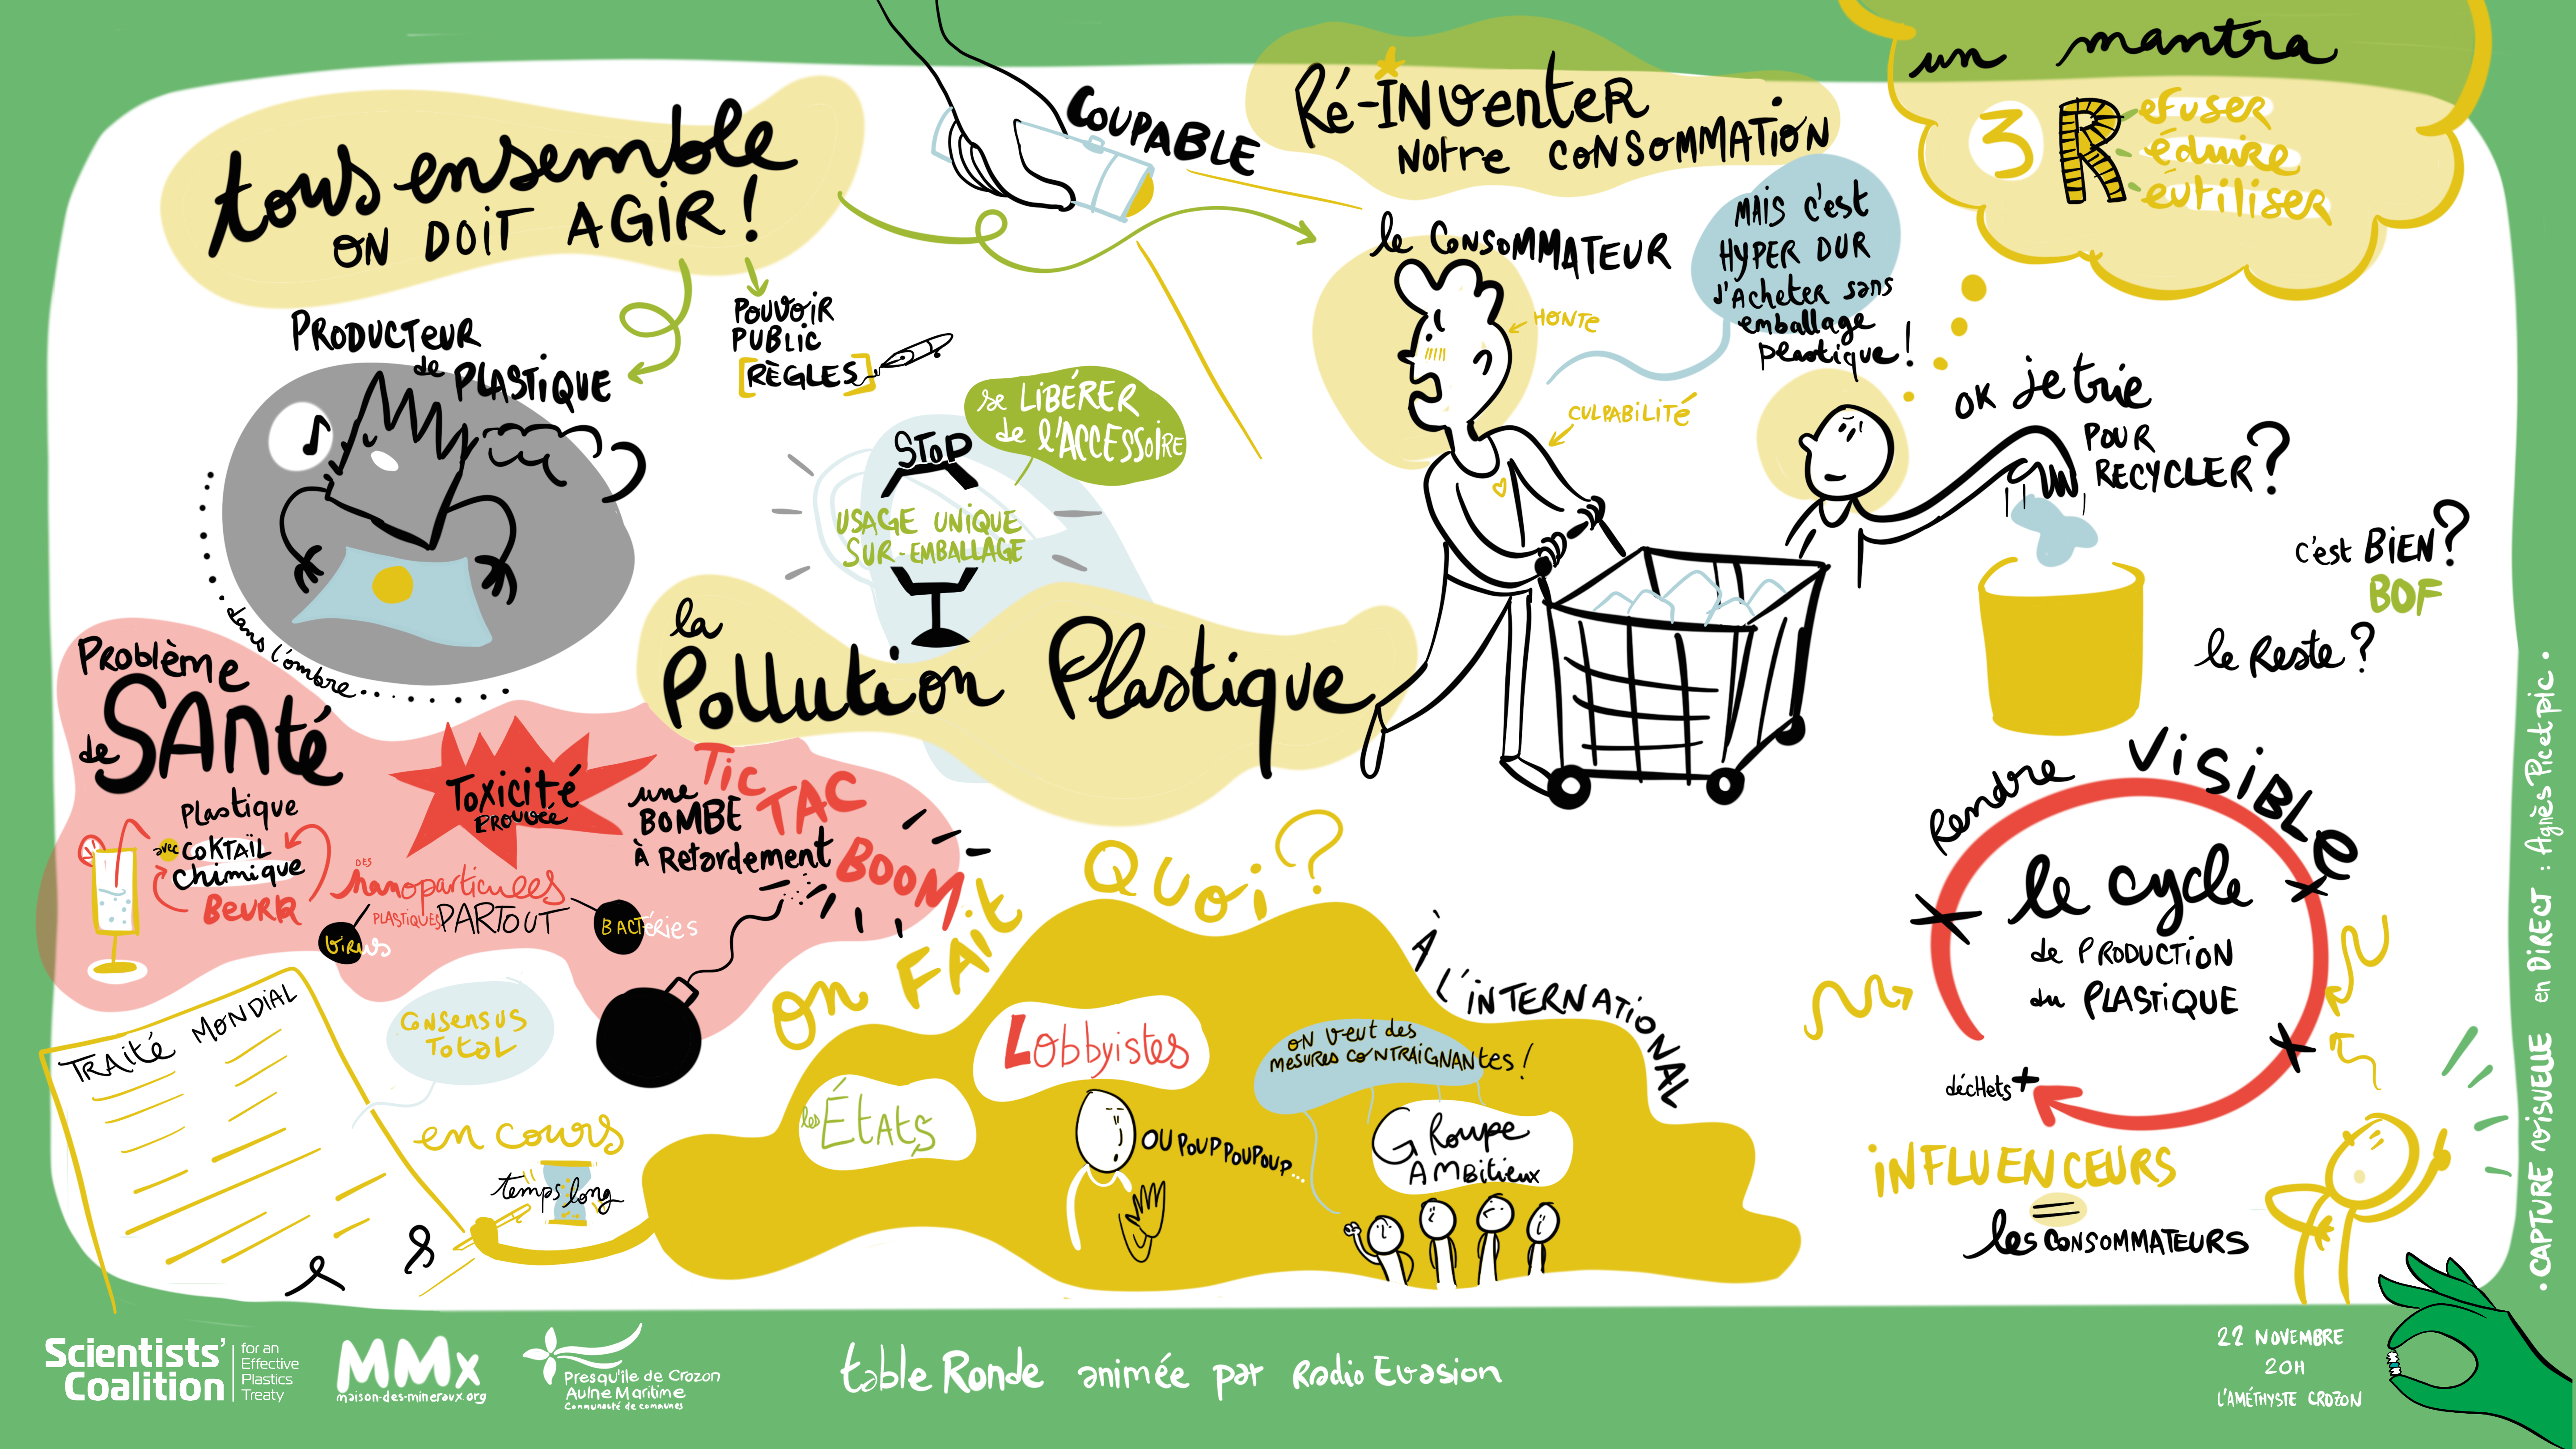 tous ensemble
ON DOIT AGIR !
COUPABLE
Ré-INVenteR
Notre CONSOMMATION
un mantra
3 R
efuser
éduire
éutiliser
PRODUCTEUR
de PLASTIQUE
dans l'ombre
POUVOIR
PUBLIC
[RÈGLES]
STOP
USAGE UNIQUE
SUR-EMBALLAGE
se LIBÉRER
de l'ACCESSOIRE
le CONSOMMATEUR
HONTE
CULPABILITÉ
MAIS c'est
HYPER DUR
d'Acheter sans
emballage
plastique !
OK je trie
POUR
RECYCLER ?
c'est BIEN ?
BOF
le Reste ?
la
Pollution Plastique
Problème
de SANté
Plastique
avec COKTAÏL
chimique
BEURK
Toxicité
PROUVÉE
DES
nanoparticules
PLASTIQUES PARTOUT
Virus
BACTÉRIES
une
BOMBE
à Retardement
Tic
TAC
BOOM
on FAit QUOI ?
À L'INTERNATIONAL
TRAITÉ MONDIAL
CONSENSUS
TOTAL
en cours
temps long
les ÉTATS
Lobbyistes
OUPOUPPOUPOUP...
ON veut des
MESURES CONTRAIGNANTES !
GROUPE
AMBITIEUX
Rendre VISIBLE
le cycle
de PRODUCTION
du PLASTIQUE
décHets +
INFLUENCEURS
=
les CONSOMMATEURS
• CAPTURE VISUELLE en DIRECT : Agnès Pic et pic •
Scientists'
Coalition
for an
Effective
Plastics
Treaty
MMx
maison-des-mineraux.org
Presqu'île de Crozon
Aulne Maritime
Communauté de communes
table Ronde animée par Radio Evasion
22 NOVEMBRE
20H
L'AMÉTHYSTE CROZON